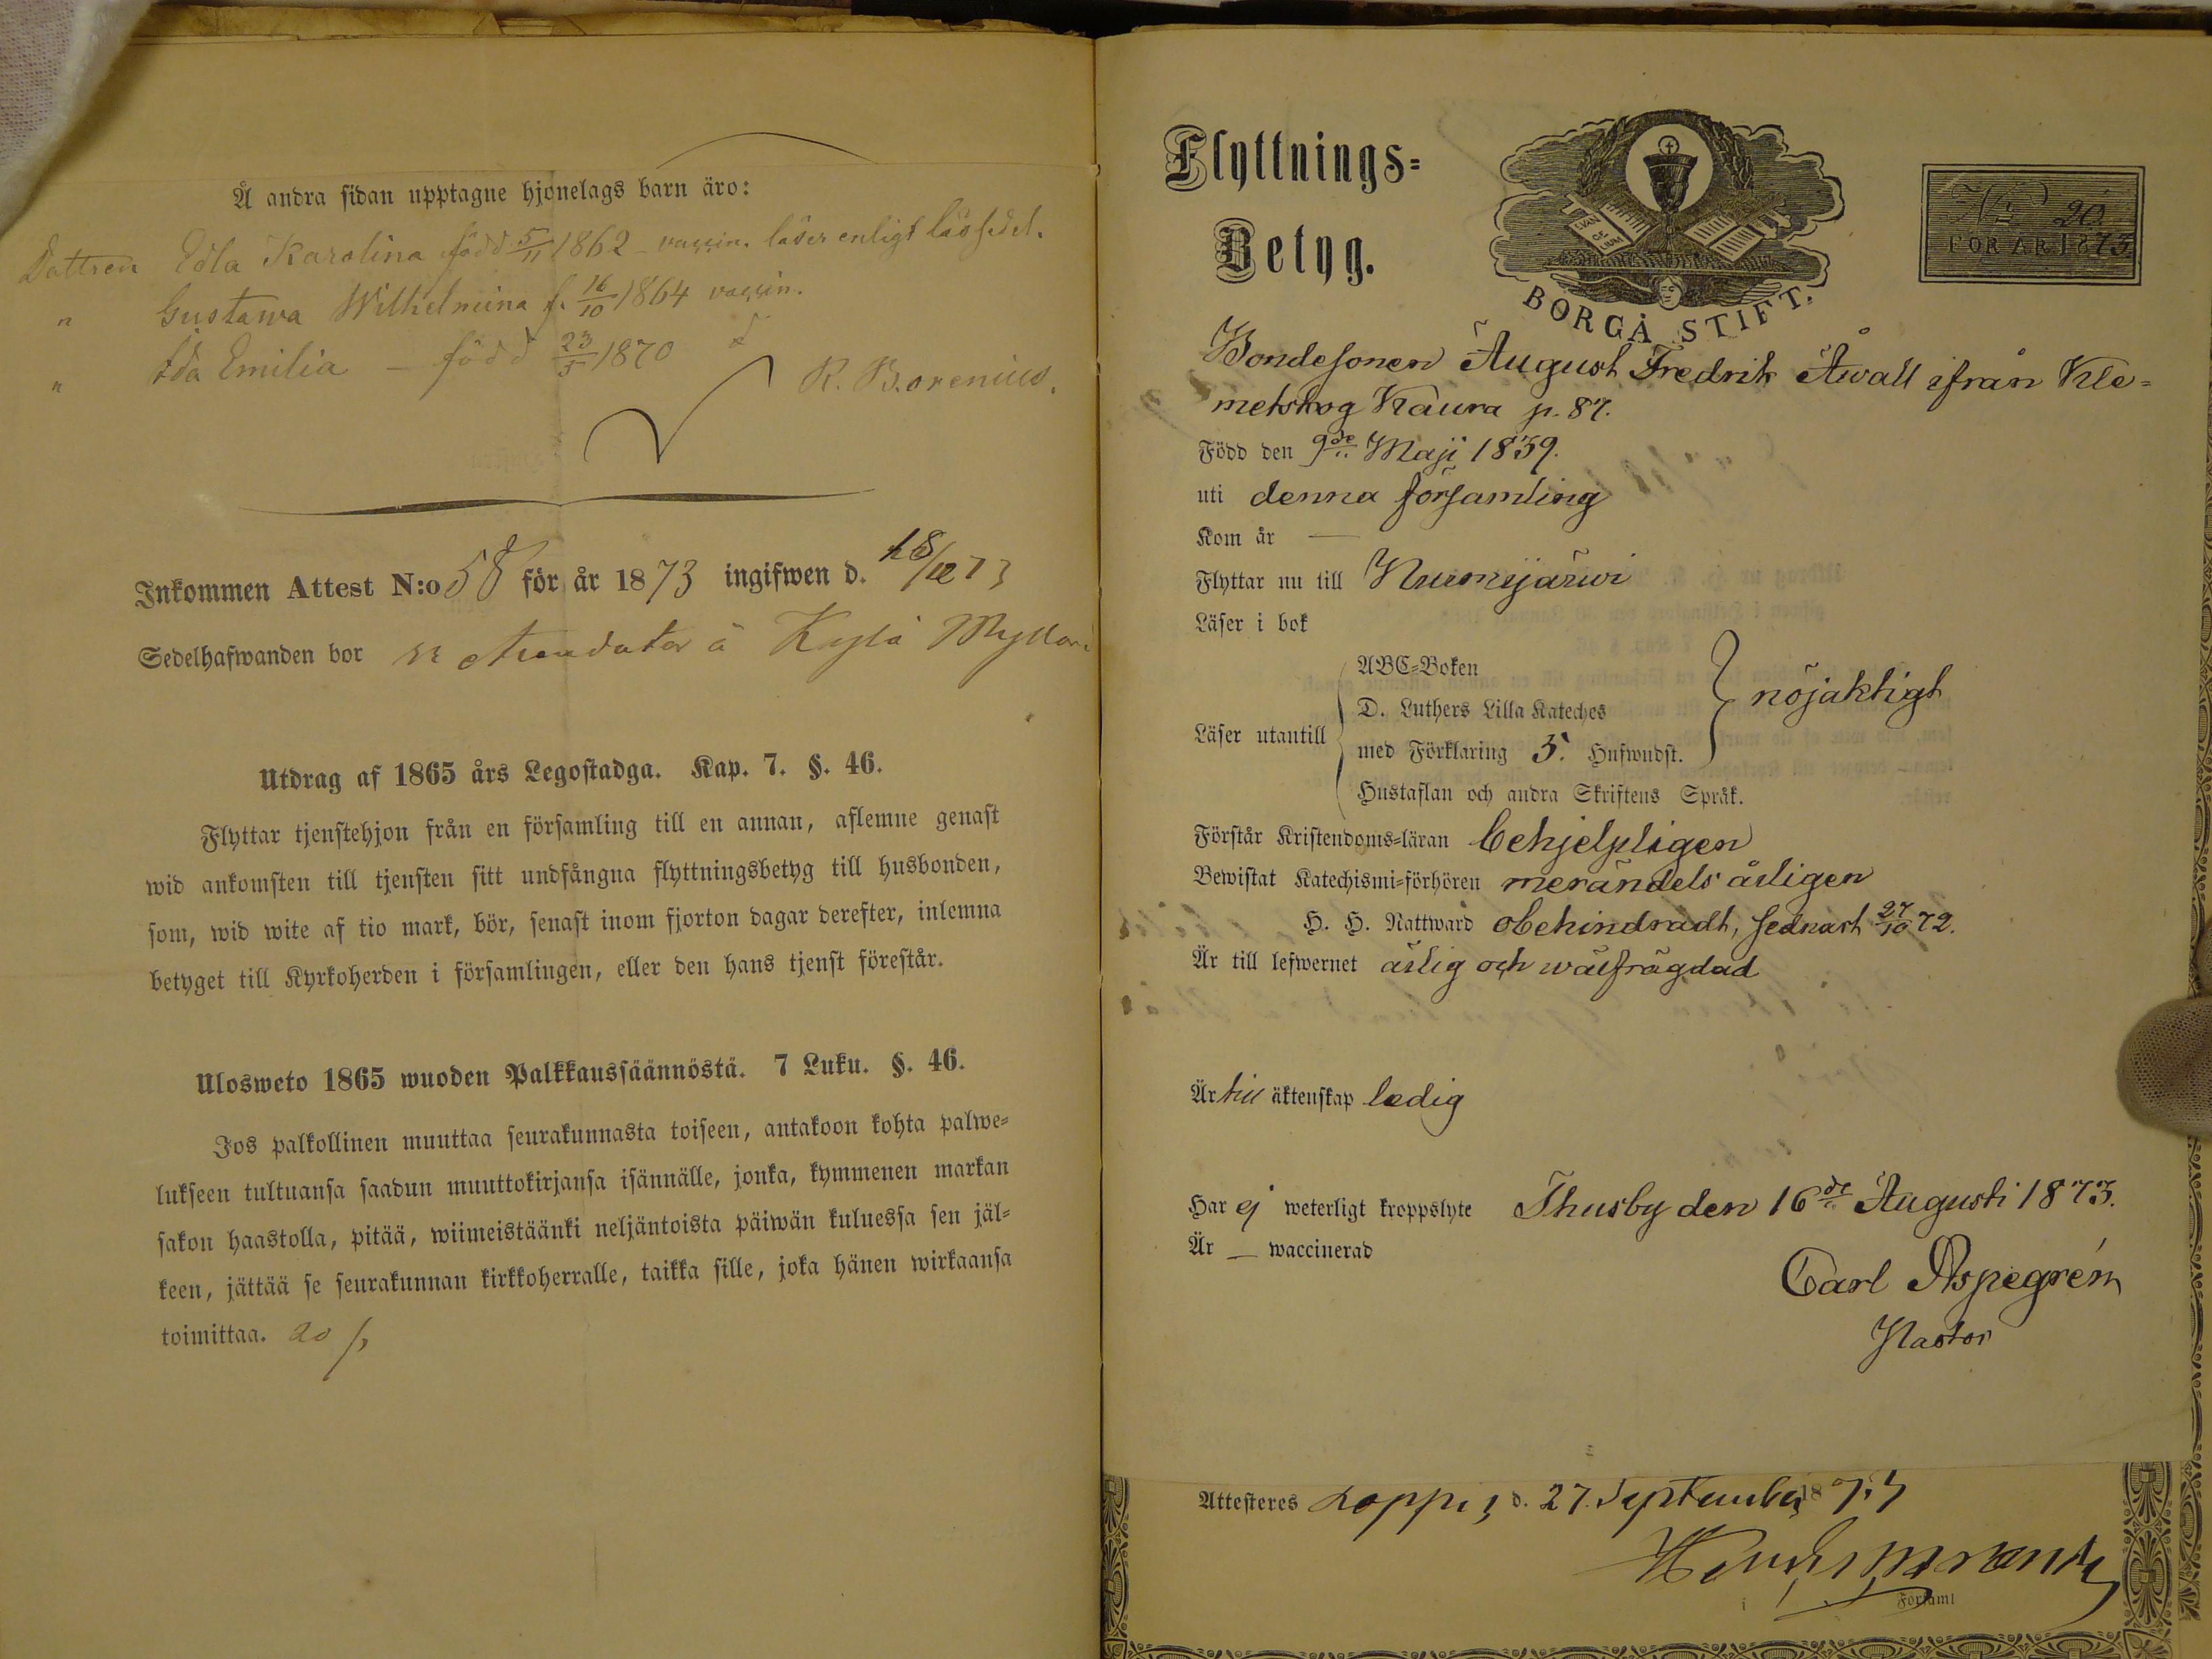 Å andra sidan upptagne hjonelags barn äro:
Dottren Edla Karolina född 5/11 1862 - vaccin. läser enligt lässedel.
" Gustawa Wilhelmina f. 16/10 1864 vaccin.
" Ida Emilia - född 23/5 1870 d
R. Borenius.
Inkommen Attest N:o 58 för år 1873 ingifwen d. 18/12 73
Sedelhafwanden bor Arendator å Kytö
Utdrag af 1865 års Legostadga. Kap. 7. §. 46.
Flyttar tjenstehjon från en församling till en annan, aflemne genast
wid ankomsten till tjensten sitt undfångna flyttningsbetyg till husbonden,
som, wid wite af tio mark, bör, senast inom fjorton dagar derefter, inlemna
betyget till Kyrkoherden i församlingen, eller den hans tjenst förestår.
Ulosweto 1865 wuoden Palkkaussäännöstä. 7 Luku. §. 46.
Jos palkollinen muuttaa seurakunnasta toiseen, antakoon kohta palwe=
lukseen tultuansa saadun muuttokirjansa isännälle, jonka, kymmenen markan
sakon haastolla, pitää, wiimeistäänki neljäntoista päiwän kuluessa sen jäl=
keen, jättää se seurakunnan kirkkoherralle, taikka sille, joka hänen wirkaansa
toimittaa. 20
Flyttnings=
Betyg.
EVAN
GE
LIUM
BORGÅ STIFT.
No 20
FÖR ÅR 1873
Bondesonen August Fredrik Åwall ifrån Kle=
metskog Kaura p. 87.
Född den 9de Maji 1839.
uti denna församling
Kom år —
Flyttar nu till Nurmijärwi
Läser i bok
Läser utantill
ABC=Boken
D. Luthers Lilla Kateches
med Förklaring 5. Hufwudst.
Hustaflan och andra Skriftens Språk.
nöjaktigt
Förstår Kristendoms=läran behjelpligen
Bewistat Katechismi=förhören merändels årligen
H. H. Nattward obehindradt, sednast 27/10 72.
Är till lefwernet ärlig och wälfrägdad
Är till äktenskap ledig
Har ej weterligt kroppslyte Thusby den 16de Augusti 1873.
Är — waccinerad
Carl Aspegrén
Pastor
Attesteres Loppis d. 27. September 1873
i Församl